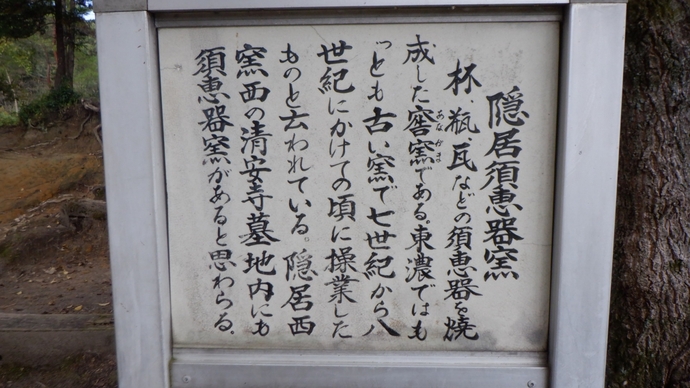 隠居須恵器窯
杯、瓶、瓦などの須恵器を焼
成した窖窯である。東濃ではも
あながま
っとも古い窯で七世紀から八
世紀にかけての頃に操業した
ものと云われている。隠居西
窯西の清安寺墓地内にも
須恵器窯があると思わらる。